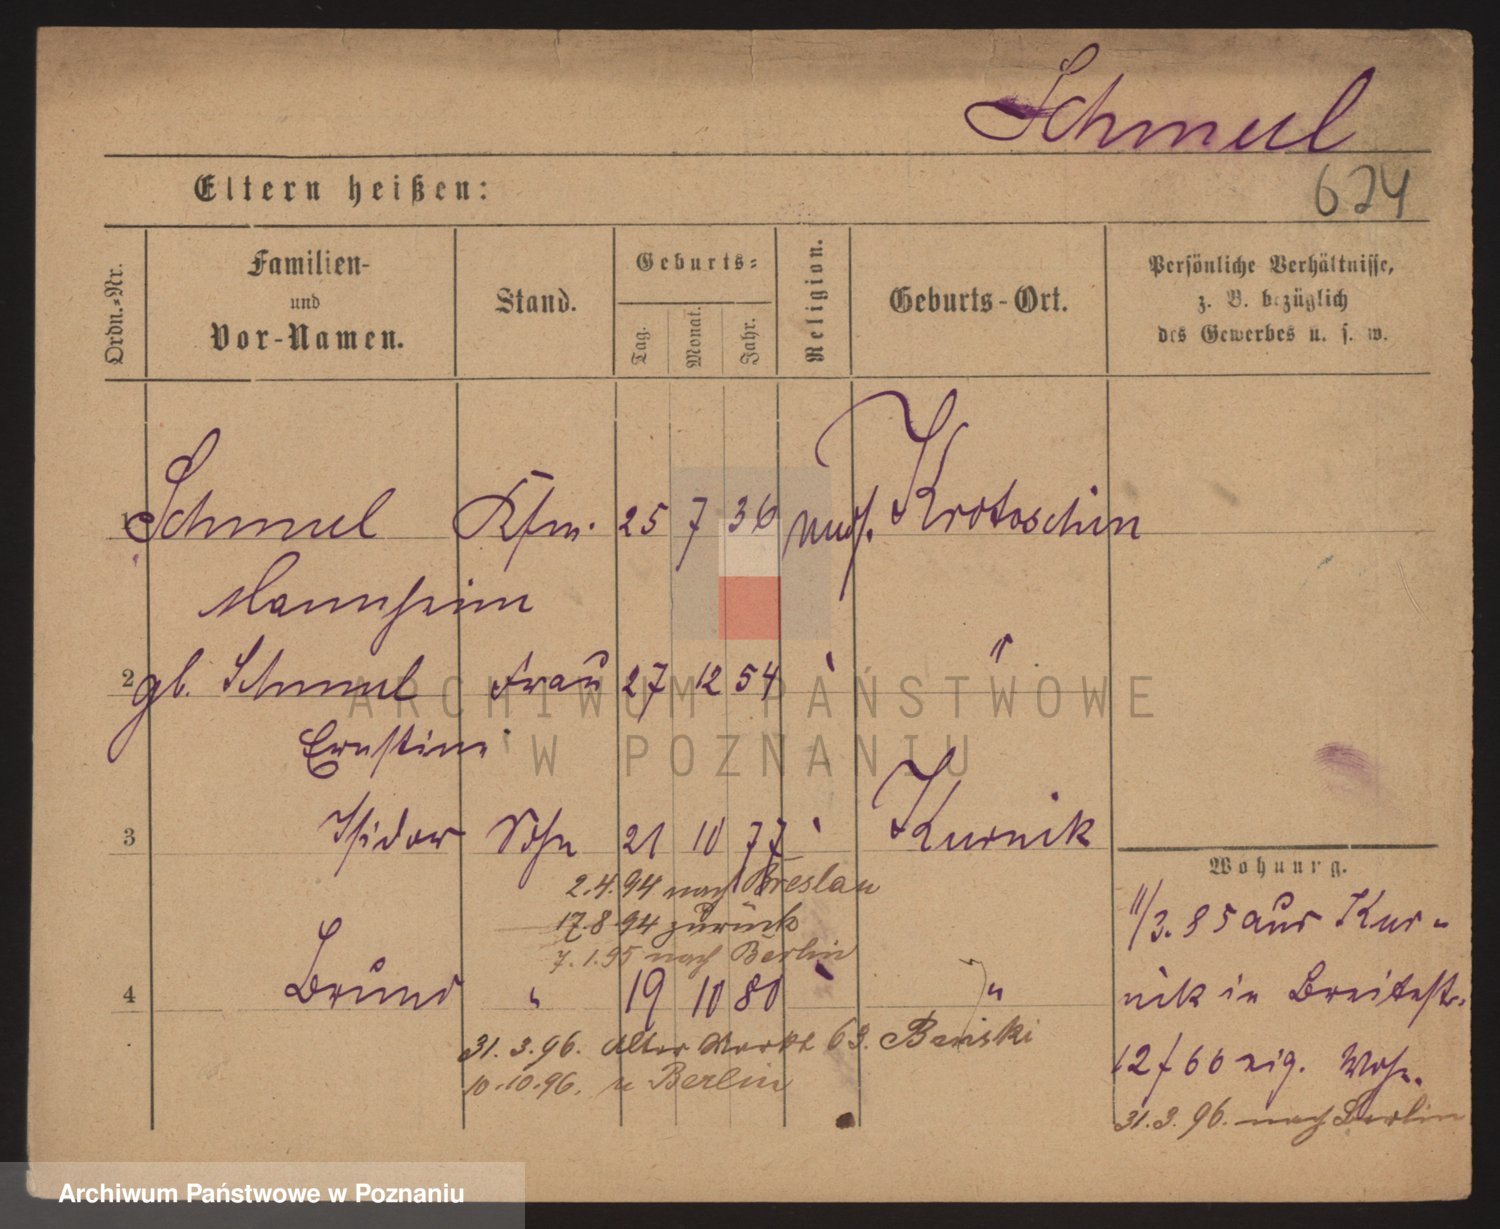 Schmul
Eltern heißen:
624
Ordn.-Nr.
Familien- und Vor-Namen.
Stand.
Geburts-
Tag. Monat. Jahr.
Religion.
Geburts-Ort.
Persönliche Verhältnisse, z. B. bezüglich des Gewerbes u. s. w.
1 Schmul Kfm. 25 7 36 mos. Krotoschin
Mannheim
2 gb. Schmul Frau 27 12 54 " "
Ernstine
3 Isidor Sohn 21 10 77 " Kurnik
2.4.94 nach Breslau
17.8.94 zurück
7.1.95 nach Berlin
4 Bruno " 19 10 80 " "
31.3.96. Alter Markt 63.
10.10.96. n Berlin
Wohnung.
11/3.85 aus Kur-
nik in Breitestr.
12/60 eig. Wohn.
31.3.96. nach Berlin
ARCHIWUM PAŃSTWOWE
W POZNANIU
Archiwum Państwowe w Poznaniu